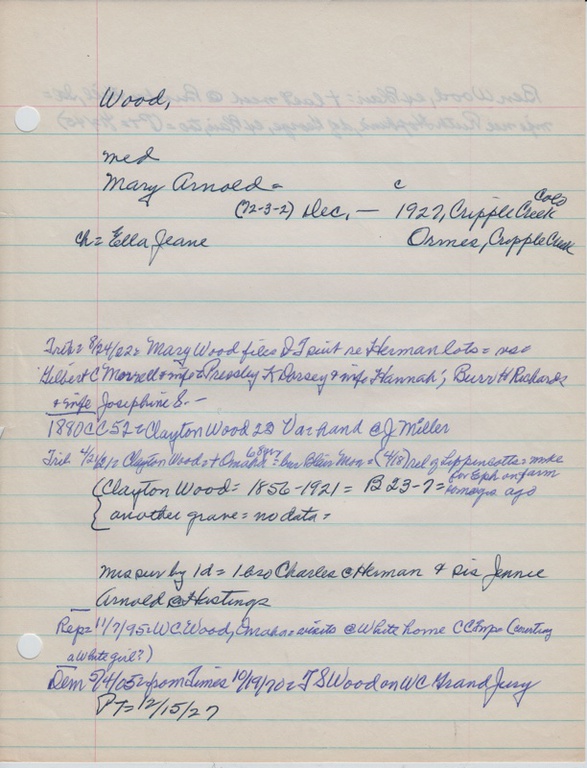 Wood,
med
Mary Arnold =
c
(72-3-2) Dec, — 1927, Cripple Creek Colo
ch = Ella Jeane Ormes, Cripple Creek
Trib = 8/24/02 = Mary Wood files D T suit re Herman lots = vs =
Gilbert C & wife & Pressley K Dorsey & wife Hannah; Burr H Richards
& wife Josephine S. —
1880 CC 52 = Clayton Wood 22 Va hand @ J Miller
Trib 4/21/21 = Clayton Wood = + Omaha 68 yrs = bur Blair Mon = (4/18) rel of Lippincotts = mode
for Eph on farm
(Clayton Wood = 1856-1921 = B 23-7 = some yrs ago
{ another grave = no data =
Mrs sur by 1d = 1 bro Charles @ Herman & sis Jennie
Arnold @ Hastings
Rep = 11/7/95 = W.C. Wood, Omaha = visits @ White home CC Imps (courting
a White girl?)
Dem 5/4/05 = from Times 10/19/70 = T S Wood on WC Grand Jury
PT = 12/15/27